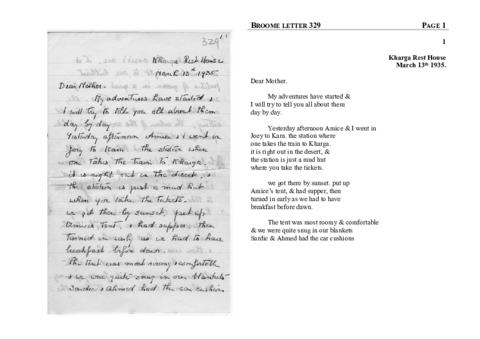 329 1
Kharga Rest House
March 13th 1935.
Dear Mother.
My adventures have started &
I will try to tell you all about them
day by day.
Yesterday afternoon Amice & I went in
Joey to Karn. the station where
one takes the train to Kharga.
it is right out in the desert, &
the station is just a mud hut
where you take the tickets.
we got there by sunset. put up
Amice's tent, & had supper, then
turned in early as we had to have
breakfast before dawn.
The tent was most roomy & comfortable
& we were quite snug in our blankets
Sardic & Ahmed had the car cushions
BROOME LETTER 329 PAGE 1
1
Kharga Rest House
March 13th 1935.
Dear Mother.
My adventures have started &
I will try to tell you all about them
day by day.
Yesterday afternoon Amice & I went in
Joey to Karn. the station where
one takes the train to Kharga.
it is right out in the desert, &
the station is just a mud hut
where you take the tickets.
we got there by sunset. put up
Amice's tent, & had supper, then
turned in early as we had to have
breakfast before dawn.
The tent was most roomy & comfortable
& we were quite snug in our blankets
Sardic & Ahmed had the car cushions